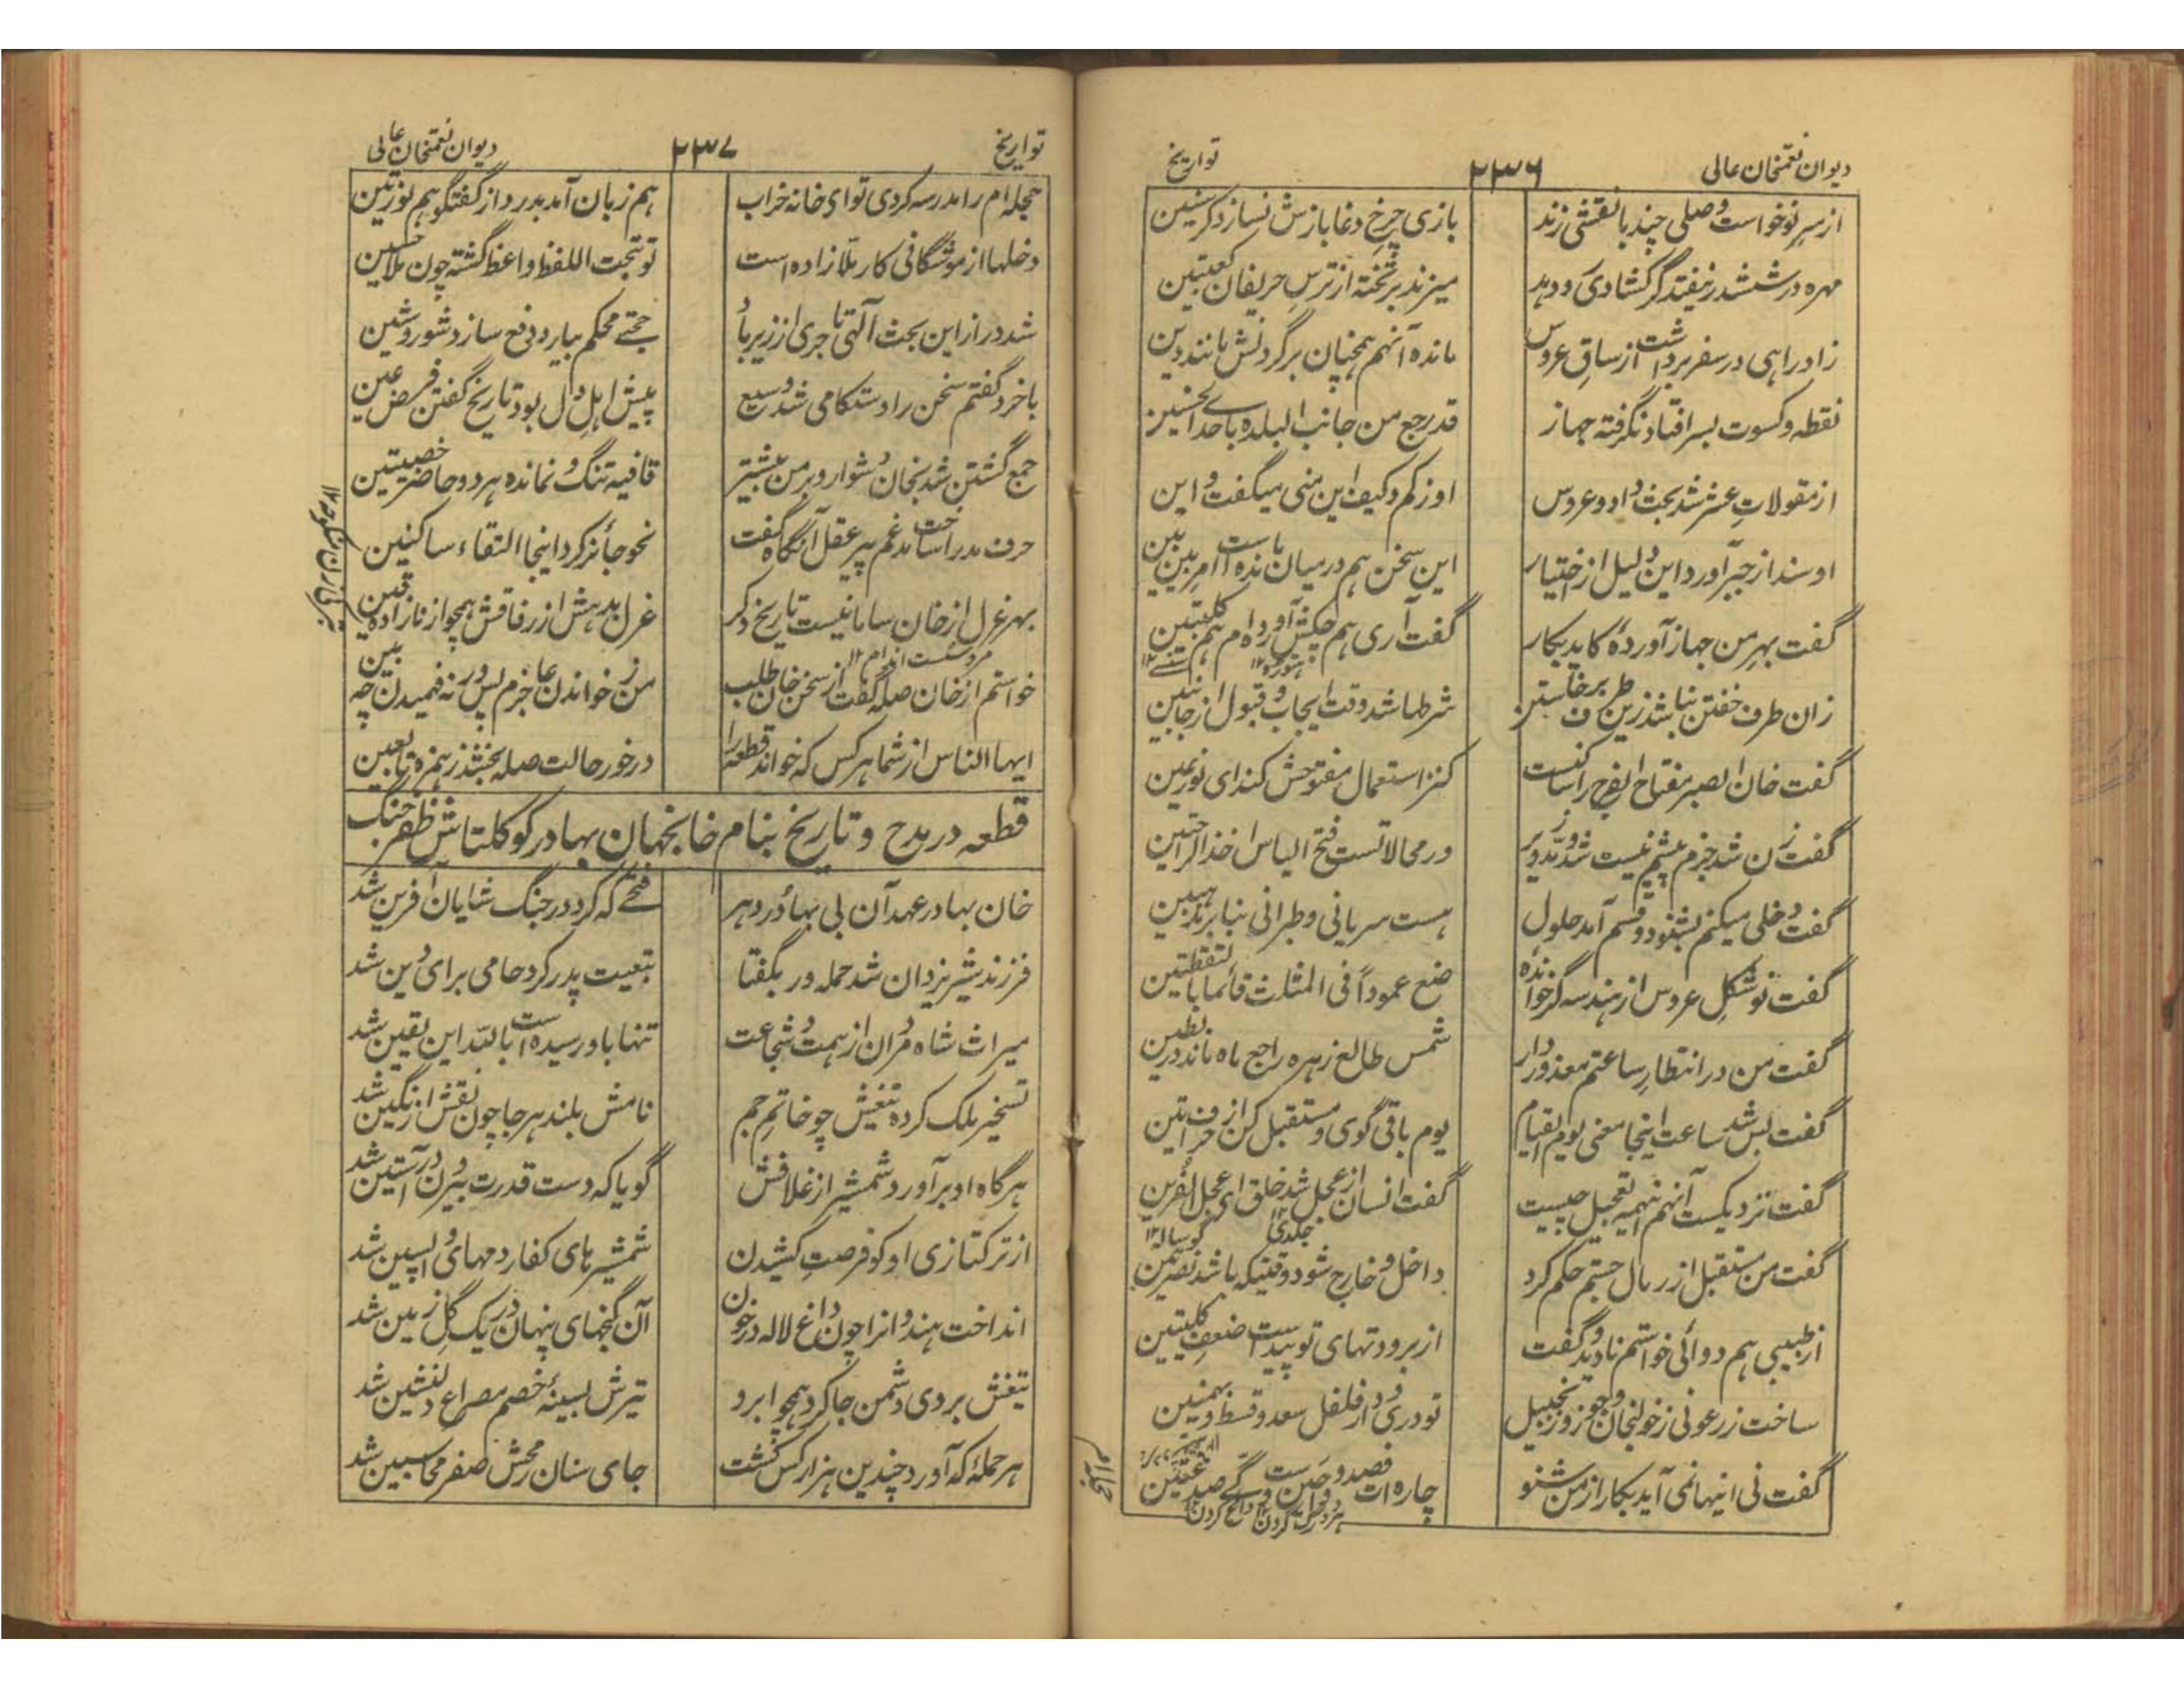 دیوان نعمتخان عالی
۲۳۶
تواریخ
از سر نو خواست وصلی چند با نقشی زند
بازی چرخ دغا بازش نسازد کر شین
مهره در ششدر نیفتد گر کشادی رو دهد
میزند بر تخته از ترس حریفان کعبتین
زاد راهی در سفر برداشت از ساق عروس
مانده آنهم همچنان بر گردنش مانند دین
نقطه و کسوت بسر افتاد نگرفته جهاز
قد رجع من جانب البلده باحدی الحسنیین
از مقولات عشر شد بحث داد و عروس
او ز کم و کیف این منی میگفت و این
او سند از جبر آورد این دلیل از اختیار
این سخن هم در میان مانده است امر بین بین
گفت بهر من جهاز آورده کاید بکار
گفت آری هم چکش آورده ام هم کلبتین
زان طرف خفتن نباشد زین طرف برخاستن
شرطها شد وقت ایجاب و قبول از جانبین
گفت خان الصبر مفتاح الفرج راسا کنست
کنز استعمال مفتوحش کند ای نور عین
گفت زن شد جزم پیشم نیست شد و مد و زیر
در محالاتست فتح الیاس احدی الراحتین
گفت دخلی میکنم بشنود و قسم آمد حلول
هست سریانی و طریانی بنا بر مذهبین
گفت تو شکل عروس از هندسه گر خوانده
ضع عموداً فی المثلث قائما بالنقطتین
گفت من در انتظار ساعتم معذور دار
شمس طالع زهره راجع ماه مانده در بطین
گفت بس شد ساعت اینجا معنی یوم القیام
یوم باقی گوی و مستقبل کن از حرف اتین
گفت نزدیکست آنهم اینهمه تعجیل چیست
گفت انسان از عجل شد خلق ای عجل القرین
گفت من مستقبل از رمال جستم حکم کرد
داخل و خارج شود وقتیکه باشد نصرتین
از طبیبی هم دوائی خواستم نادید و گفت
از برودتهای تو پیداست ضعف کلیتین
ساخت زرعونی ز خولنجان و جوز و زنجبیل
تودری و دار فلفل سعد و قسط و بهمنین
گفت نی اینها نمی آید بکار از من شنو
چاره ات فصد و حصن ست و گی صد غتین
تواریخ
۲۳۷
دیوان نعمتخان عالی
حجله ام را مدرسه کردی تو ای خانه خراب
هم زبان آمد بدرد از گفتگو هم نور تین
دخلها از موشگافی کار ملا زاده است
تو تحت اللفظ واعظ گشته چون ملا حسین
شد دراز این بحث آلتی تا جری از زیر ما
حجتے محکم بیارد دفع سازد شور و شین
با خرد گفتم سخن را دستگاهی شد وسیع
پیش اهل دل بود تاریخ گفتن فرض عین
جمع گشتن شد بخان دشوار و بر من بیشتر
قافیه تنگ و نمانده هر دو حاضر خصیتین
حرف مد را ساخت مدغم پیر عقل آنگاه گفت
نحو جائز کرد اینجا التقاء ساکنین
بهر غرل از خان سامانیست تاریخ دگر
غرل بد هش از رفاقش همچو از نار زاده قین
خواستم از خان صله گفت از سخن خان طلب
من ز خواندن عاجزم پس در نه فهمیدن چه بین
ایها الناس از شما هر کس که خواند قطعه را
در خور حالت صله بخشد ز همزه تا بعین
قطعه در مدح و تاریخ بنام خانجهان بهادر کوکلتاش ظفر جنگ
خان بهادر عهد آن بی بهادُر دهر
فتحے که کرد در جنگ شایان آفرین شد
فرزند شیر یزدان شد حمله ور بگفتا
تبعیت پدر کرد حامی برای دین شد
میراث شاه مردان از همت و شجاعت
تنها باو رسیده است بالله این یقین شد
تسخیر ملک کرده تیغش چو خاتم جم
نامش بلند هر جا چون نقش از نگین شد
هر گاه او بر آورد شمشیر از غلافش
گویا که دست قدرت بیرون در آستین شد
از ترکتازی او کو فرصت کشیدن
شمشیرهای کفار دمهای واپسین شد
انداخت هندوانرا چون داغ لاله در خون
آن گنجهای پنهان در یک گل زمین شد
تیغش بروی دشمن جا کرد همچو ابرو
تیرش بسینهٔ خصم مصراع دلنشین شد
هر حملهٔ که آورد چندین هزار کس کشت
جای سنان رمحش صفر محاسبین شد